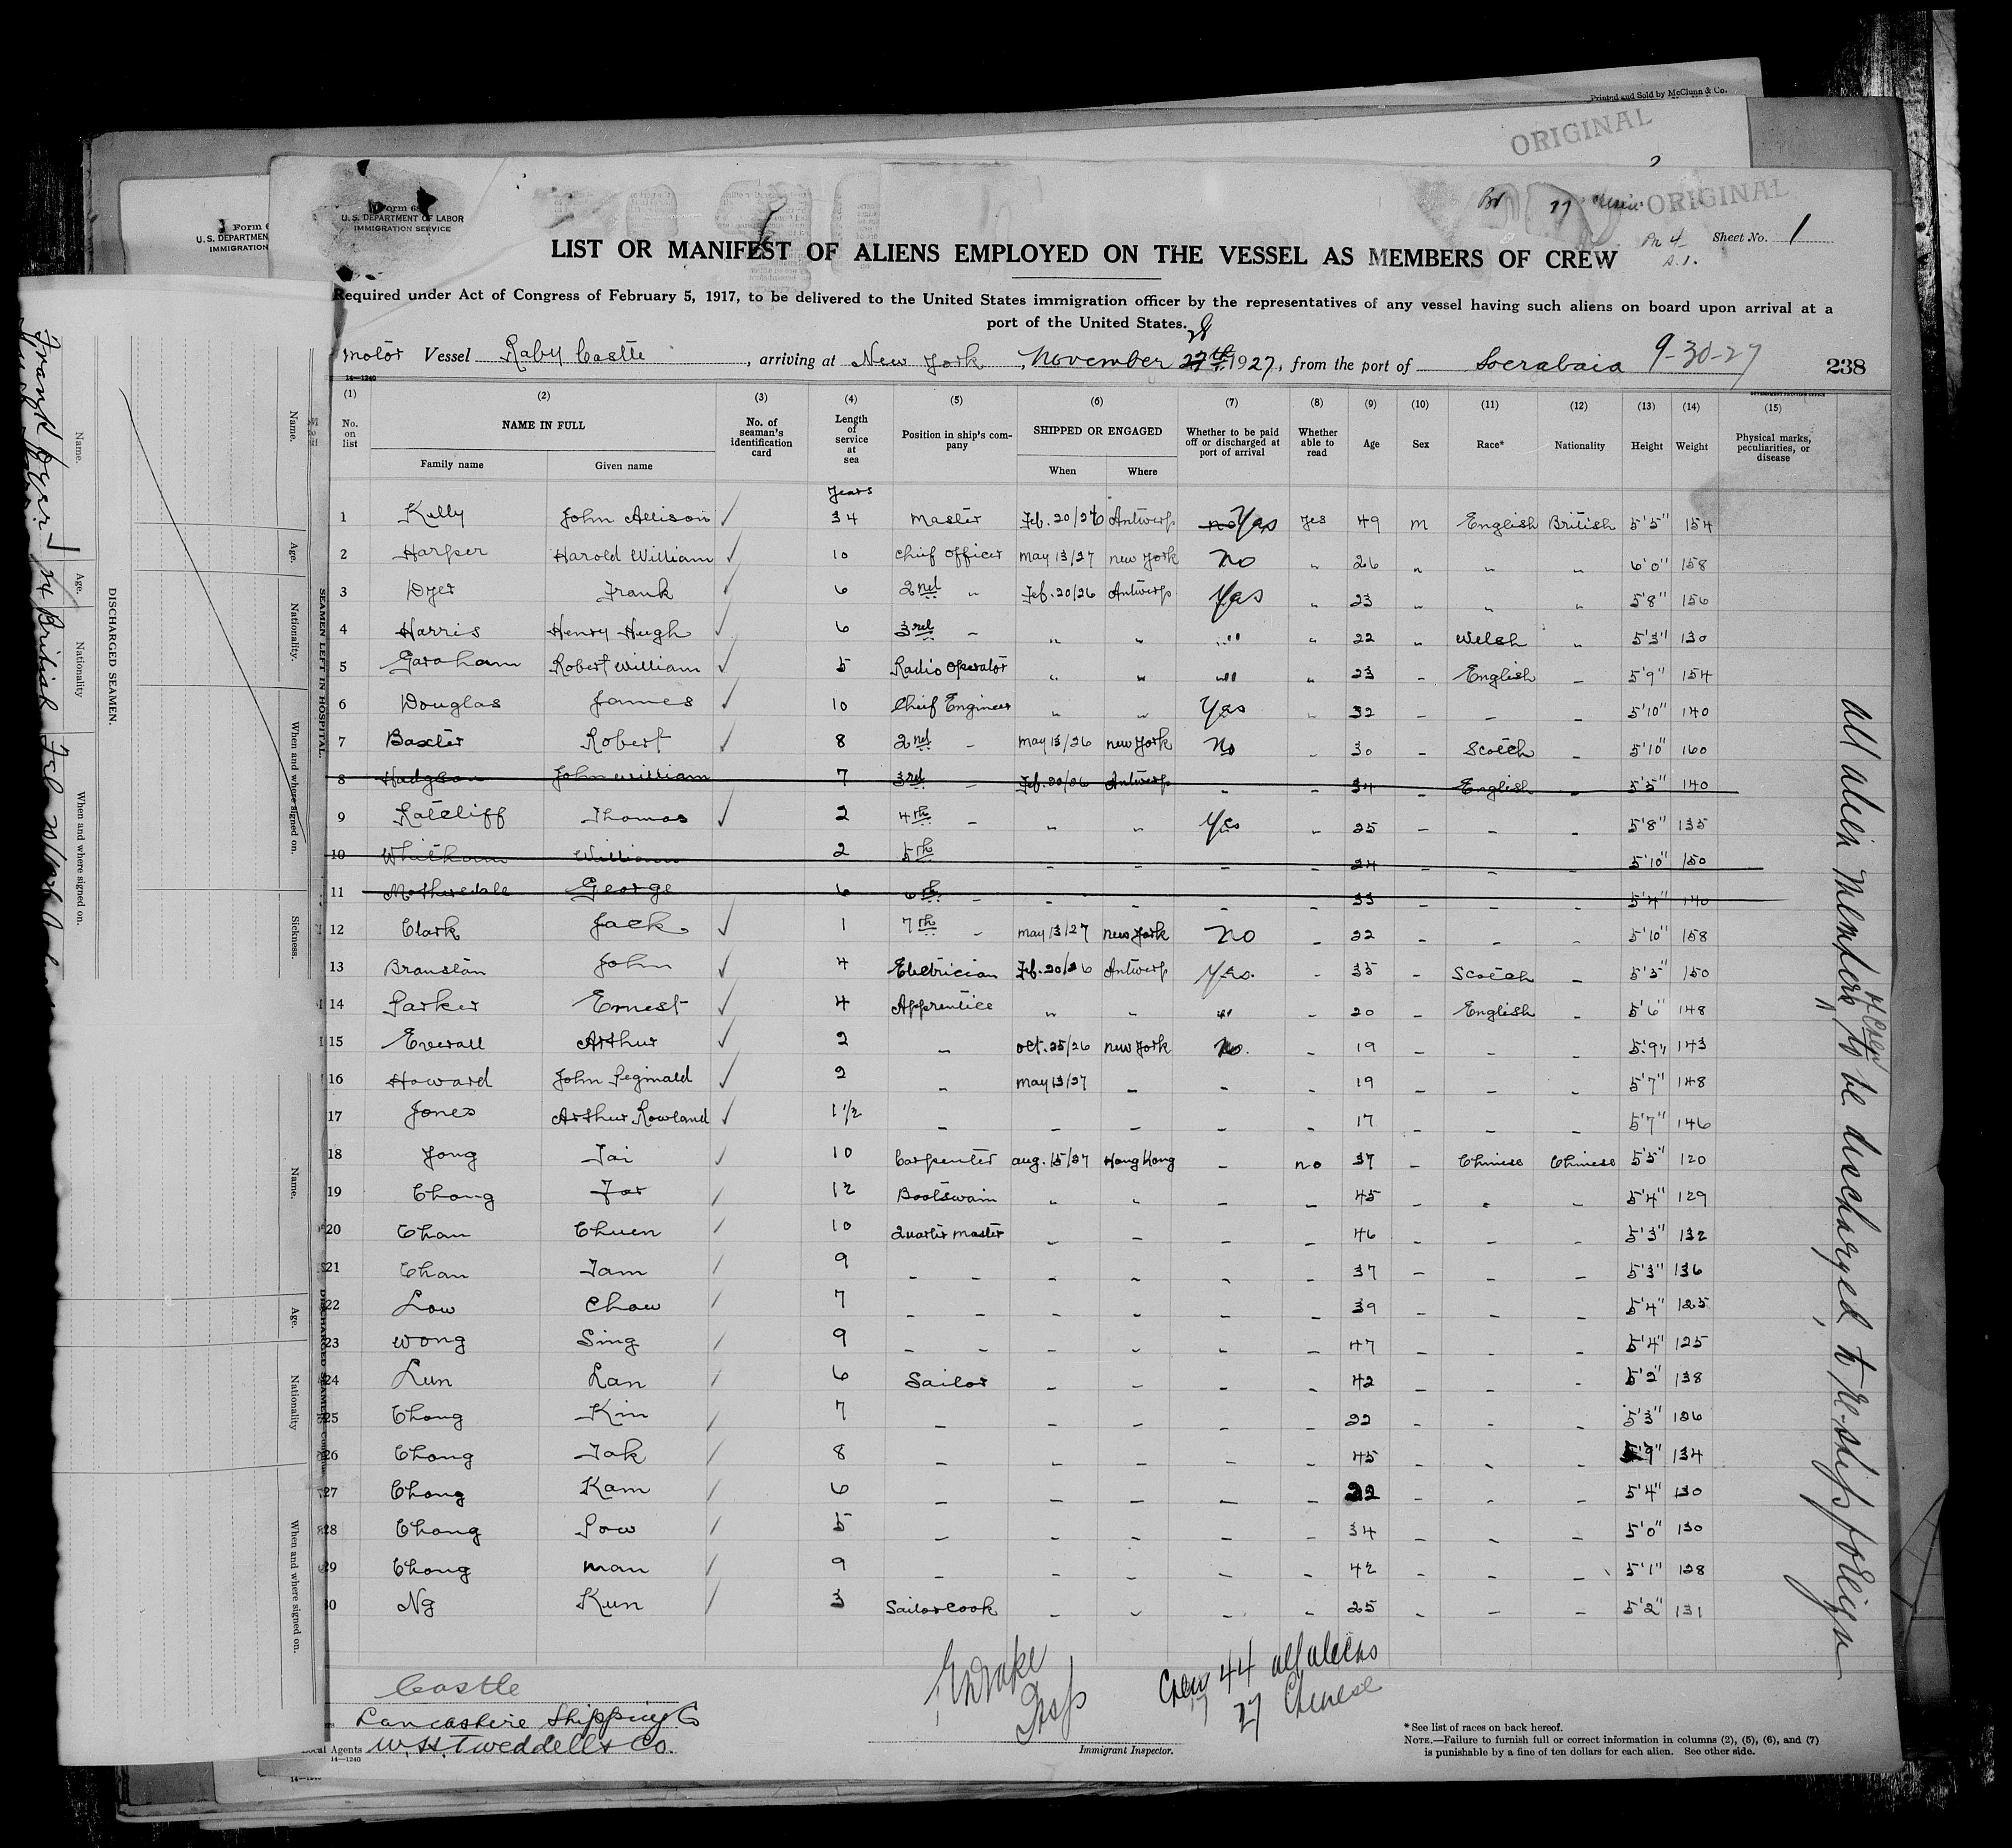 Printed and Sold by McClunn & Co.
ORIGINAL
ORIGINAL
Form 6
U.S. DEPARTMENT
IMMIGRATION
Form 68
U.S. DEPARTMENT OF LABOR
IMMIGRATION SERVICE
Sheet No. 1
LIST OR MANIFEST OF ALIENS EMPLOYED ON THE VESSEL AS MEMBERS OF CREW
Required under Act of Congress of February 5, 1917, to be delivered to the United States immigration officer by the representatives of any vessel having such aliens on board upon arrival at a
port of the United States.
28
Motor Vessel Raby Castle, arriving at New York, November 27th 1927, from the port of Soerabaia 9-30-27
238
14—1240
GOVERNMENT PRINTING OFFICE
(1) (2) (3) (4) (5) (6) (7) (8) (9) (10) (11) (12) (13) (14) (15)
No. on list NAME IN FULL No. of seaman's identification card Length of service at sea Position in ship's company SHIPPED OR ENGAGED Whether to be paid off or discharged at port of arrival Whether able to read Age Sex Race* Nationality Height Weight Physical marks, peculiarities, or disease
Family name Given name When Where
Years
1 Kelly John Allison ✓ 34 Master Feb. 20/26 Antwerp no Yes Yes 49 M English British 5'5" 154
2 Harper Harold William ✓ 10 Chief Officer May 13/27 New York No " 26 " " " 6'0" 158
3 Dyer Frank ✓ 6 2nd " Feb. 20/26 Antwerp Yes " 23 " " " 5'8" 156
4 Harris Henry Hugh ✓ 6 3rd - " " " " 22 " Welsh " 5'3" 130
5 Garaham Robert William ✓ 5 Radio Operator " " " " 23 - English - 5'9" 154
6 Douglas James ✓ 10 Chief Engineer " " Yes " 32 - - - 5'10" 140
7 Baxter Robert ✓ 8 2nd - May 13/26 New York No - 30 - Scotch - 5'10" 160
8 Hodgson John William 7 3rd - Feb. 20/26 Antwerp - - 34 - English - 5'5" 140
9 Ratcliff Thomas ✓ 2 4th - " " Yes " 25 - - - 5'8" 135
10 Whitham William 2 5th - - - - 24 - - - 5'10" 150
11 George 6 6th - - - - - 33 - - - 5'4" 140
12 Clark Jack. ✓ 1 7th - May 13/27 New York No - 22 - - - 5'10" 158
13 Branstan John ✓ 4 Electrician Feb. 20/26 Antwerp Yes. - 35 - Scotch - 5'5" 150
14 Parker Ernest ✓ 4 Apprentice " " " - 20 - English - 5'6" 148
15 Everall Arthur ✓ 2 - Oct. 25/26 New York No. - 19 - - - 5'9" 143
16 Howard John Reginald ✓ 2 - May 13/27 - - - 19 - - - 5'7" 148
17 Jones Arthur Rowland ✓ 1 1/2 - - - - - 17 - - - 5'7" 146
18 Jong Tai ✓ 10 Carpenter Aug. 15/27 Hong Kong - no 37 - Chinese Chinese 5'5" 120
19 Chong / 12 Boatswain " " - - 45 - - - 5'4" 129
20 Chan Chuen / 10 Quarter Master - - - - 46 - - - 5'3" 132
21 Chan Tam / 9 - - - - - - 37 - - - 5'3" 136
22 Low Chow / 7 - - - - - - 39 - - - 5'4" 125
23 Wong Sing / 9 - - - - - - 47 - - - 5'4" 125
24 Lun Lan / 6 Sailor - - - - 42 - - - 5'2" 138
25 Chong Kin / 7 - - - - - 22 - - - 5'3" 126
26 Chong Tak / 8 - - - - - 45 - - - 134
27 Chong Kam / 6 - - - - - 22 - - - 5'4" 130
28 Chong Pow / 5 - - - - - 34 - - - 5'0" 130
29 Chong Man / 9 - - - - - 42 - - - 5'1" 128
30 Ng Kun / 3 Sailor Cook - - - - 25 - - - 5'2" 131
All alien members of Crew to be discharged to re-ship foreign
Castle
Lancashire Shipping Co
Local Agents W.H. Tweddell & Co.
14—1240
Drake
Insp
Immigrant Inspector.
Crew 44 all aliens
17 27 Chinese
* See list of races on back hereof.
NOTE.—Failure to furnish full or correct information in columns (2), (5), (6), and (7)
is punishable by a fine of ten dollars for each alien. See other side.
Frank Dyer 24 British Feb
DISCHARGED SEAMEN.
Name. Age. Nationality When and where signed on.
SEAMEN LEFT IN HOSPITAL.
Name. Age. Nationality. When and where signed on. Sickness.
DISCHARGED SEAMEN
Name. Age. Nationality When and where signed on.